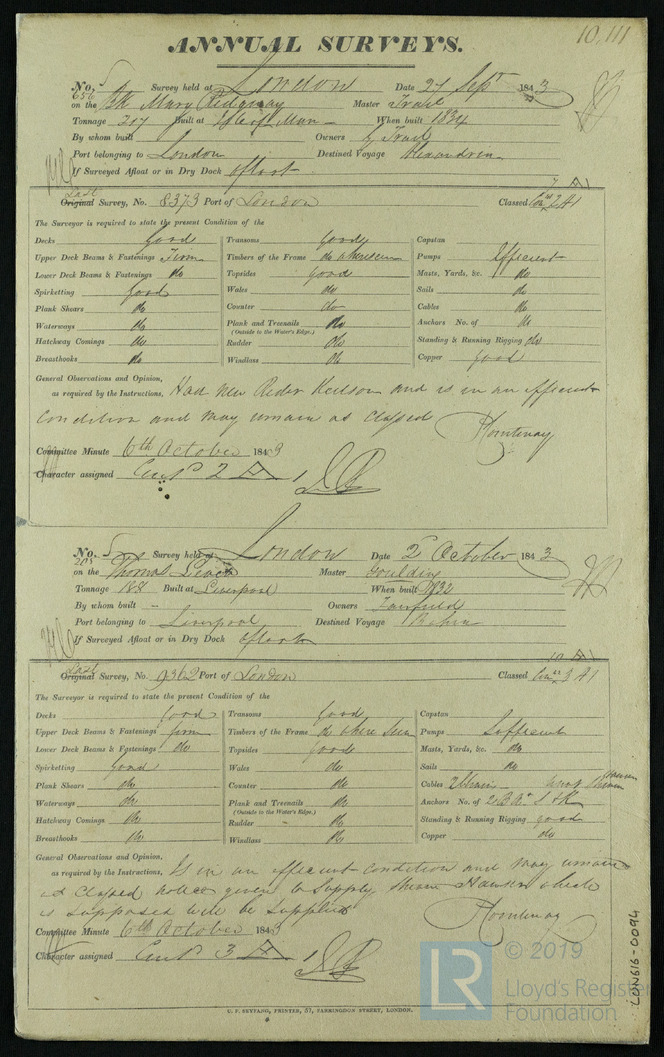 10,111
ANNUAL SURVEYS.
No. 5 Survey held at London Date 27 Sept 1843
656 on the Bk Mary Ridgway Master Trail
Tonnage 217 Built at Isle of Man When built 1834
By whom built Owners G Trail
Port belonging to London Destined Voyage Alexandria
If Surveyed Afloat or in Dry Dock afloat
Last
Original Survey, No. 8373 Port of London Classed 2 A1
The Surveyor is required to state the present Condition of the
Decks good Transoms good Capstan
Upper Deck Beams & Fastenings Firm Timbers of the Frame do where seen Pumps Efficient
Lower Deck Beams & Fastenings do Topsides good Masts, Yards, &c. do
Spirketting good Wales do Sails do
Plank Shears do Counter do Cables do
Waterways do Plank and Treenails do Anchors No. of do
(Outside to the Water's Edge.)
Hatchway Comings do Rudder do Standing & Running Rigging do
Breasthooks do Windlass do Copper good
General Observations and Opinion,
as required by the Instructions, Had New Rider Keelson and is in an efficient
condition and may remain as Classed
Committee Minute 6th October 1843
Character assigned 2 A 1
No. 5 Survey held at London Date 2 October 1843
205 on the Thomas Leach Master Goulding
Tonnage 188 Built at Liverpool When built 1832
By whom built - Owners Fairfield
Port belonging to Liverpool Destined Voyage Bahia
If Surveyed Afloat or in Dry Dock afloat
Last
Original Survey, No. 9362 Port of London Classed 3 A1
The Surveyor is required to state the present Condition of the
Decks good Transoms good Capstan
Upper Deck Beams & Fastenings firm Timbers of the Frame do where seen Pumps Sufficient
Lower Deck Beams & Fastenings do Topsides good Masts, Yards, &c. do
Spirketting good Wales do Sails do
Plank Shears do Counter do Cables 2 Chain want Stream Hawser
Waterways do Plank and Treenails do Anchors No. of
(Outside to the Water's Edge.)
Hatchway Comings do Rudder do Standing & Running Rigging good
Breasthooks do Windlass do Copper do
General Observations and Opinion,
as required by the Instructions, Is in an efficient condition and may remain
as Classed notice given to Supply Stream Hawser which
is supposed will be Supplied
Committee Minute 6th October 1843
Character assigned 3 A 1
U. F. SEYFANG, PRINTER, 57, FARRINGDON STREET, LONDON.
LON616-0094
LR
© 2019
Lloyd's Register
Foundation